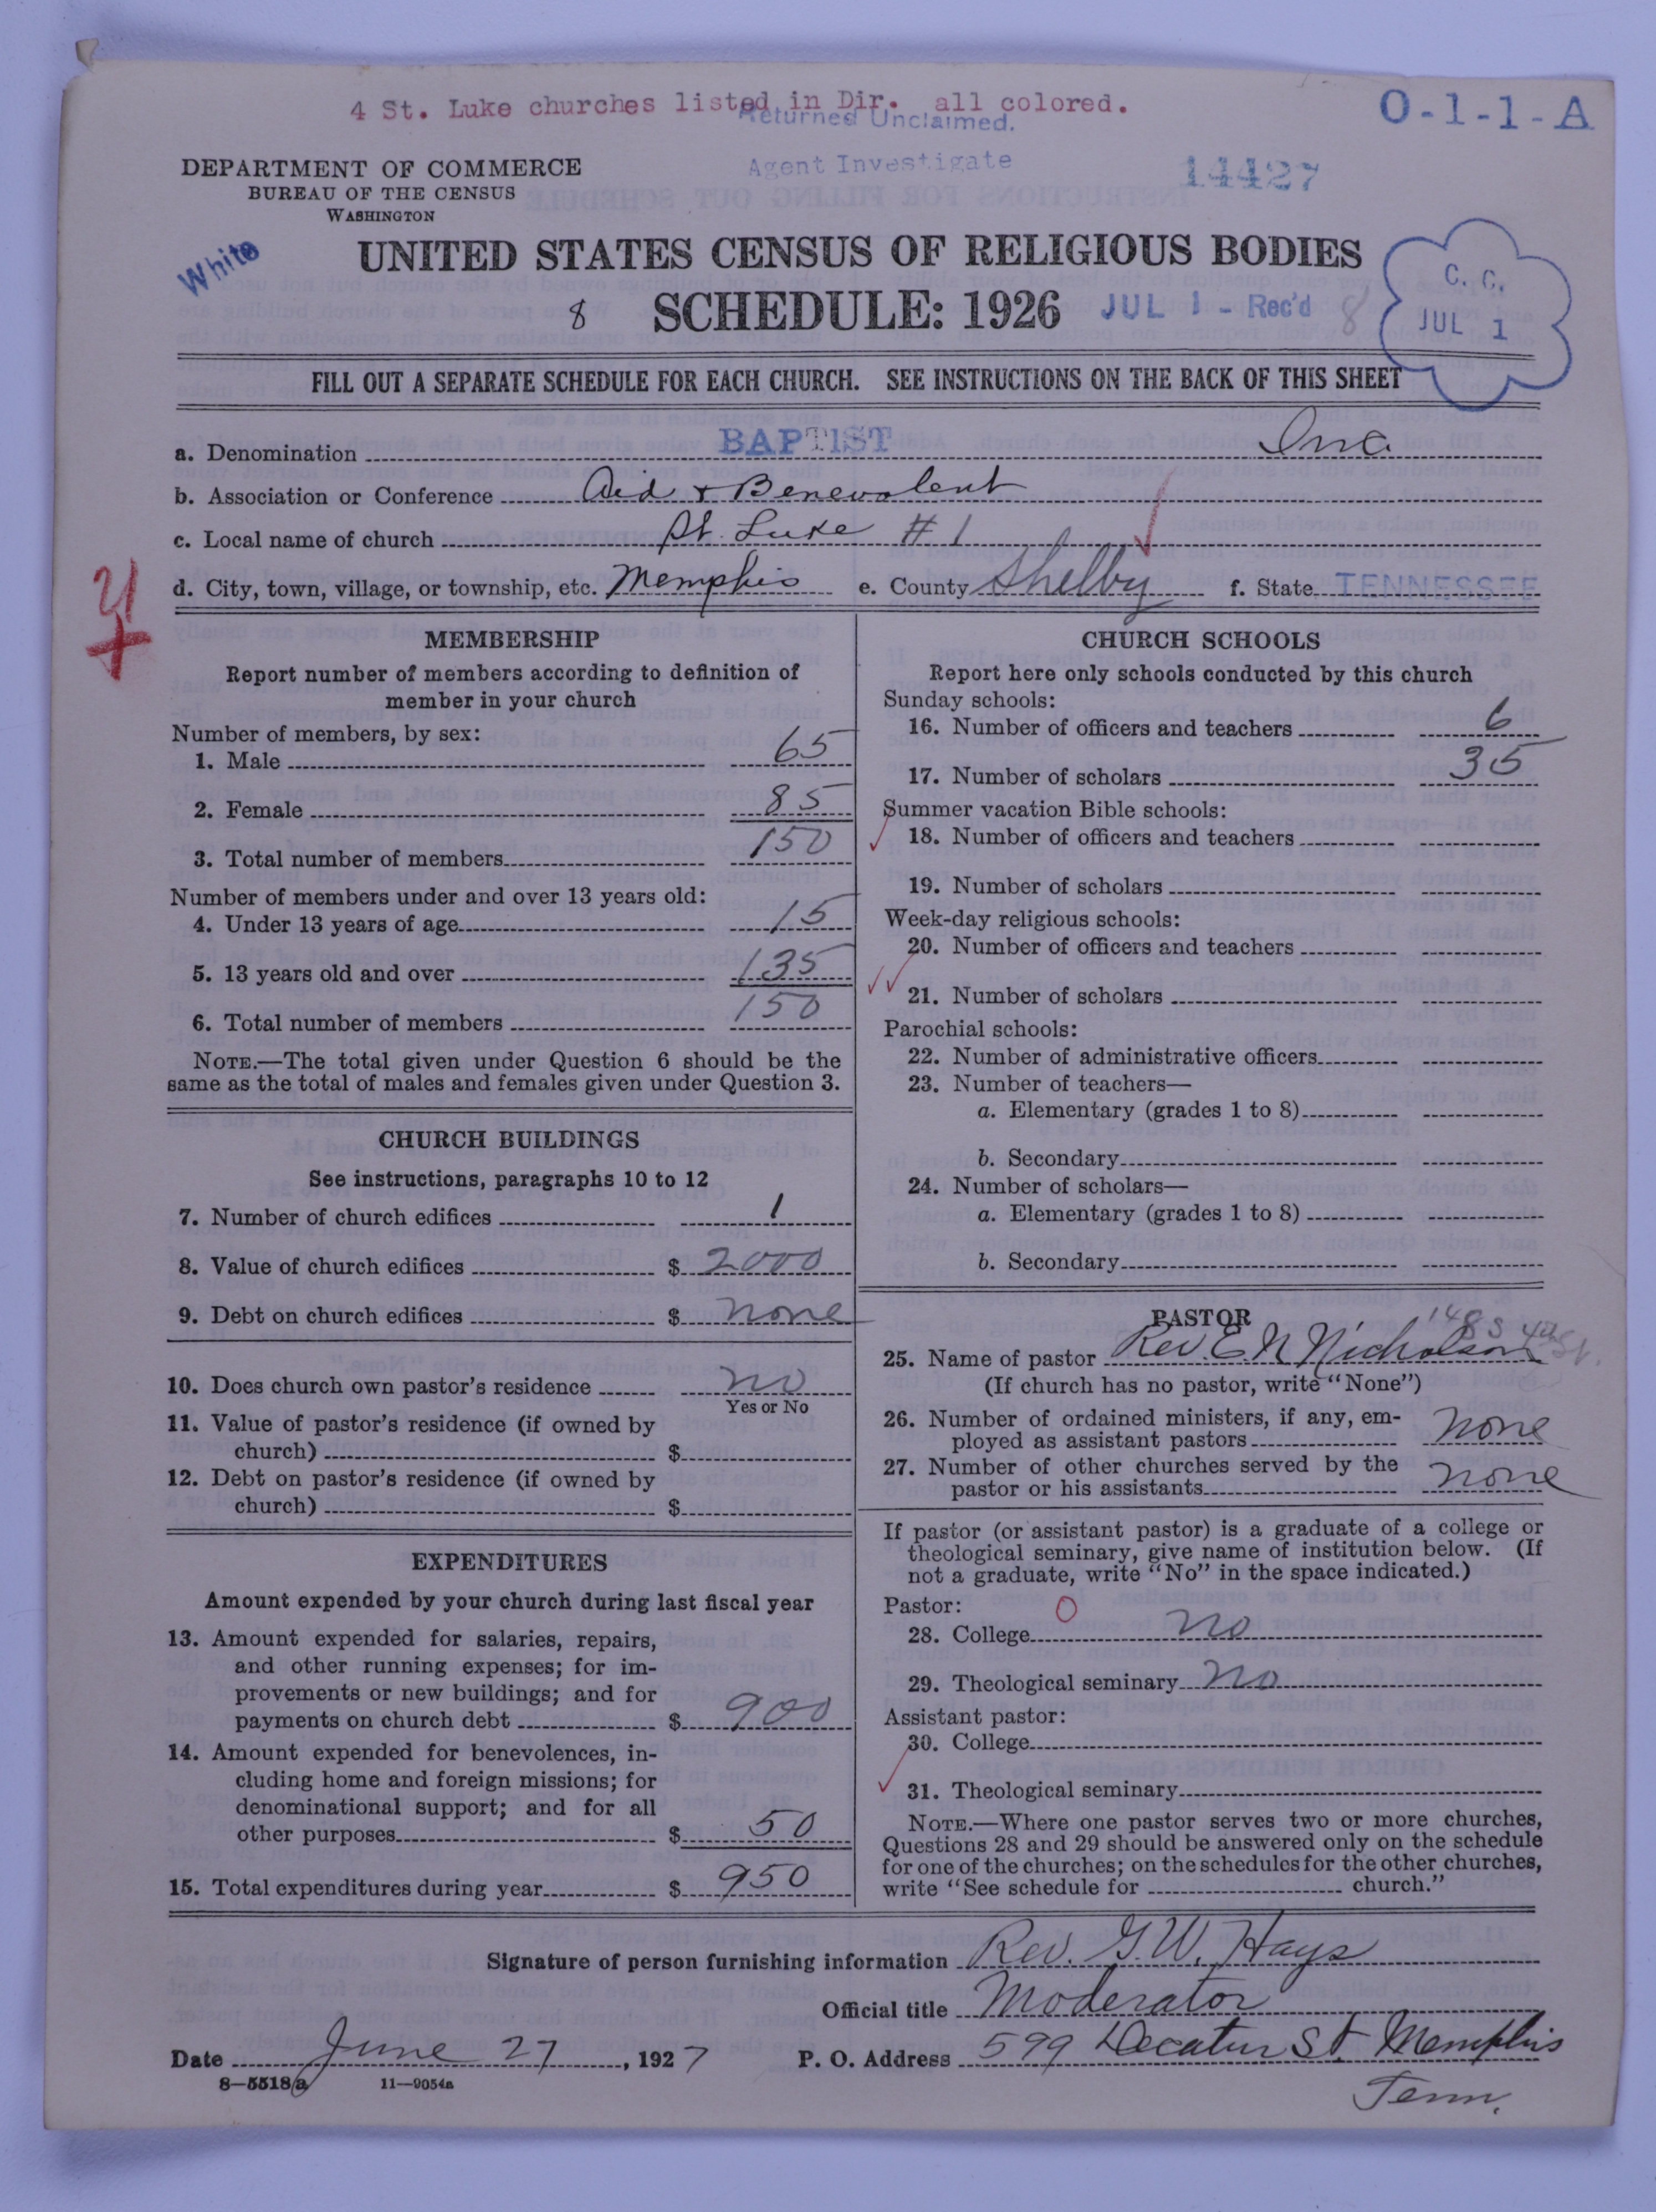 4 St. Luke churches listed in Dir. all colored.
Returned Unclaimed.
O-1-1-A
Agent Investigate
14427
DEPARTMENT OF COMMERCE
BUREAU OF THE CENSUS
WASHINGTON
White
UNITED STATES CENSUS OF RELIGIOUS BODIES
8 SCHEDULE: 1926 JUL 1 - Rec'd 8
C. C.
JUL 1
FILL OUT A SEPARATE SCHEDULE FOR EACH CHURCH. SEE INSTRUCTIONS ON THE BACK OF THIS SHEET
a. Denomination BAPTIST
b. Association or Conference Aid & Benevolent
c. Local name of church St. Luke #1
d. City, town, village, or township, etc. Memphis e. County Shelby f. State TENNESSEE
MEMBERSHIP
Report number of members according to definition of
member in your church
Number of members, by sex:
1. Male 65
2. Female 85
3. Total number of members 150
Number of members under and over 13 years old:
4. Under 13 years of age 15
5. 13 years old and over 135
6. Total number of members 150
NOTE.—The total given under Question 6 should be the
same as the total of males and females given under Question 3.
CHURCH BUILDINGS
See instructions, paragraphs 10 to 12
7. Number of church edifices 1
8. Value of church edifices $ 2000
9. Debt on church edifices $ none
10. Does church own pastor's residence no
Yes or No
11. Value of pastor's residence (if owned by
church) $
12. Debt on pastor's residence (if owned by
church) $
EXPENDITURES
Amount expended by your church during last fiscal year
13. Amount expended for salaries, repairs,
and other running expenses; for im-
provements or new buildings; and for
payments on church debt $ 900
14. Amount expended for benevolences, in-
cluding home and foreign missions; for
denominational support; and for all
other purposes $ 50
15. Total expenditures during year $ 950
CHURCH SCHOOLS
Report here only schools conducted by this church
Sunday schools:
16. Number of officers and teachers 6
17. Number of scholars 35
Summer vacation Bible schools:
18. Number of officers and teachers
19. Number of scholars
Week-day religious schools:
20. Number of officers and teachers
21. Number of scholars
Parochial schools:
22. Number of administrative officers
23. Number of teachers—
a. Elementary (grades 1 to 8)
b. Secondary
24. Number of scholars—
a. Elementary (grades 1 to 8)
b. Secondary
PASTOR
25. Name of pastor Rev. E. N Nicholson
(If church has no pastor, write "None")
26. Number of ordained ministers, if any, em-
ployed as assistant pastors none
27. Number of other churches served by the
pastor or his assistants none
If pastor (or assistant pastor) is a graduate of a college or
theological seminary, give name of institution below. (If
not a graduate, write "No" in the space indicated.)
Pastor:
28. College no
29. Theological seminary no
Assistant pastor:
30. College
31. Theological seminary
NOTE.—Where one pastor serves two or more churches,
Questions 28 and 29 should be answered only on the schedule
for one of the churches; on the schedules for the other churches,
write "See schedule for church."
Signature of person furnishing information Rev. G. W. Hays
Official title Moderator
Date June 27, 1927 P. O. Address 599 Decatur St Memphis
Tenn.
8—5518a 11—9054a